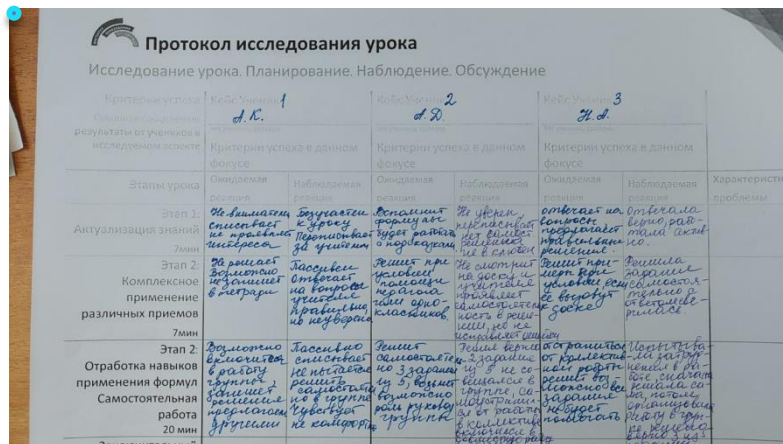 Протокол исследования урока
Исследование урока. Планирование. Наблюдение. Обсуждение
Критерии успеха
Кейс Ученик 1
А.К.
Кейс Ученик 2
А.Д.
Кейс Ученик 3
Н.А.
результаты от учеников в
исследуемом аспекте
Критерии успеха в данном
фокусе
Критерии успеха в данном
фокусе
Критерии успеха в данном
фокусе
Этапы урока
Ожидаемая
реакция
Наблюдаемая
реакция
Ожидаемая
реакция
Наблюдаемая
реакция
Ожидаемая
реакция
Наблюдаемая
реакция
Характеристи
проблемы
Этап 1:
Актуализация знаний
7мин
Не внимателен
списывает
не проявляет
интереса
Безучастен
к уроку
Переписывает
за учителем
Вспомнит
формулы
будет работать
с подсказками
Не уверен,
переписывает
нет самост.
решения
отвечает на
вопросы
предлагает
правильное
решение.
Отвечала
верно, рабо-
тала актив-
но.
Этап 2:
Комплексное
применение
различных приемов
7мин
Не решает
Возможно
запишет
в тетради
Пассивен
отвечает
на вопросы
учителя
правильно,
но неуверенно
Решит при
условии
помощи
педагога
или одно-
классников.
Не смотрит
на доску и
учителя
проявляет
самостоятель
ность в реше-
нии, но не
исправляет ошибки
Решит при-
мер при
условии, если
ее вызовут
к доске
Решила
задание
самостоя-
тельно
Этап 2:
Отработка навыков
применения формул
Самостоятельная
работа
20 мин
Возможно
включится
в работу
группы,
запишет
решение
предложен
другими
Пассивно
списывает
не пытается
решить
самостоятель
но в группе
чувствует
не комфортно
Решит
самостоятель
но 3 задания
из 5, возьмет
возможно
роль руковод
группы
Решил верно
2 задания
из 5 не со-
вещался в
группе, са-
моустранил-
ся от работы
в коллективе
отстраниться
от коллектив-
ной работы
решит воз-
можно все
задания
не будет
помогать
решала са-
ма, потом
организовала
работу в груп-